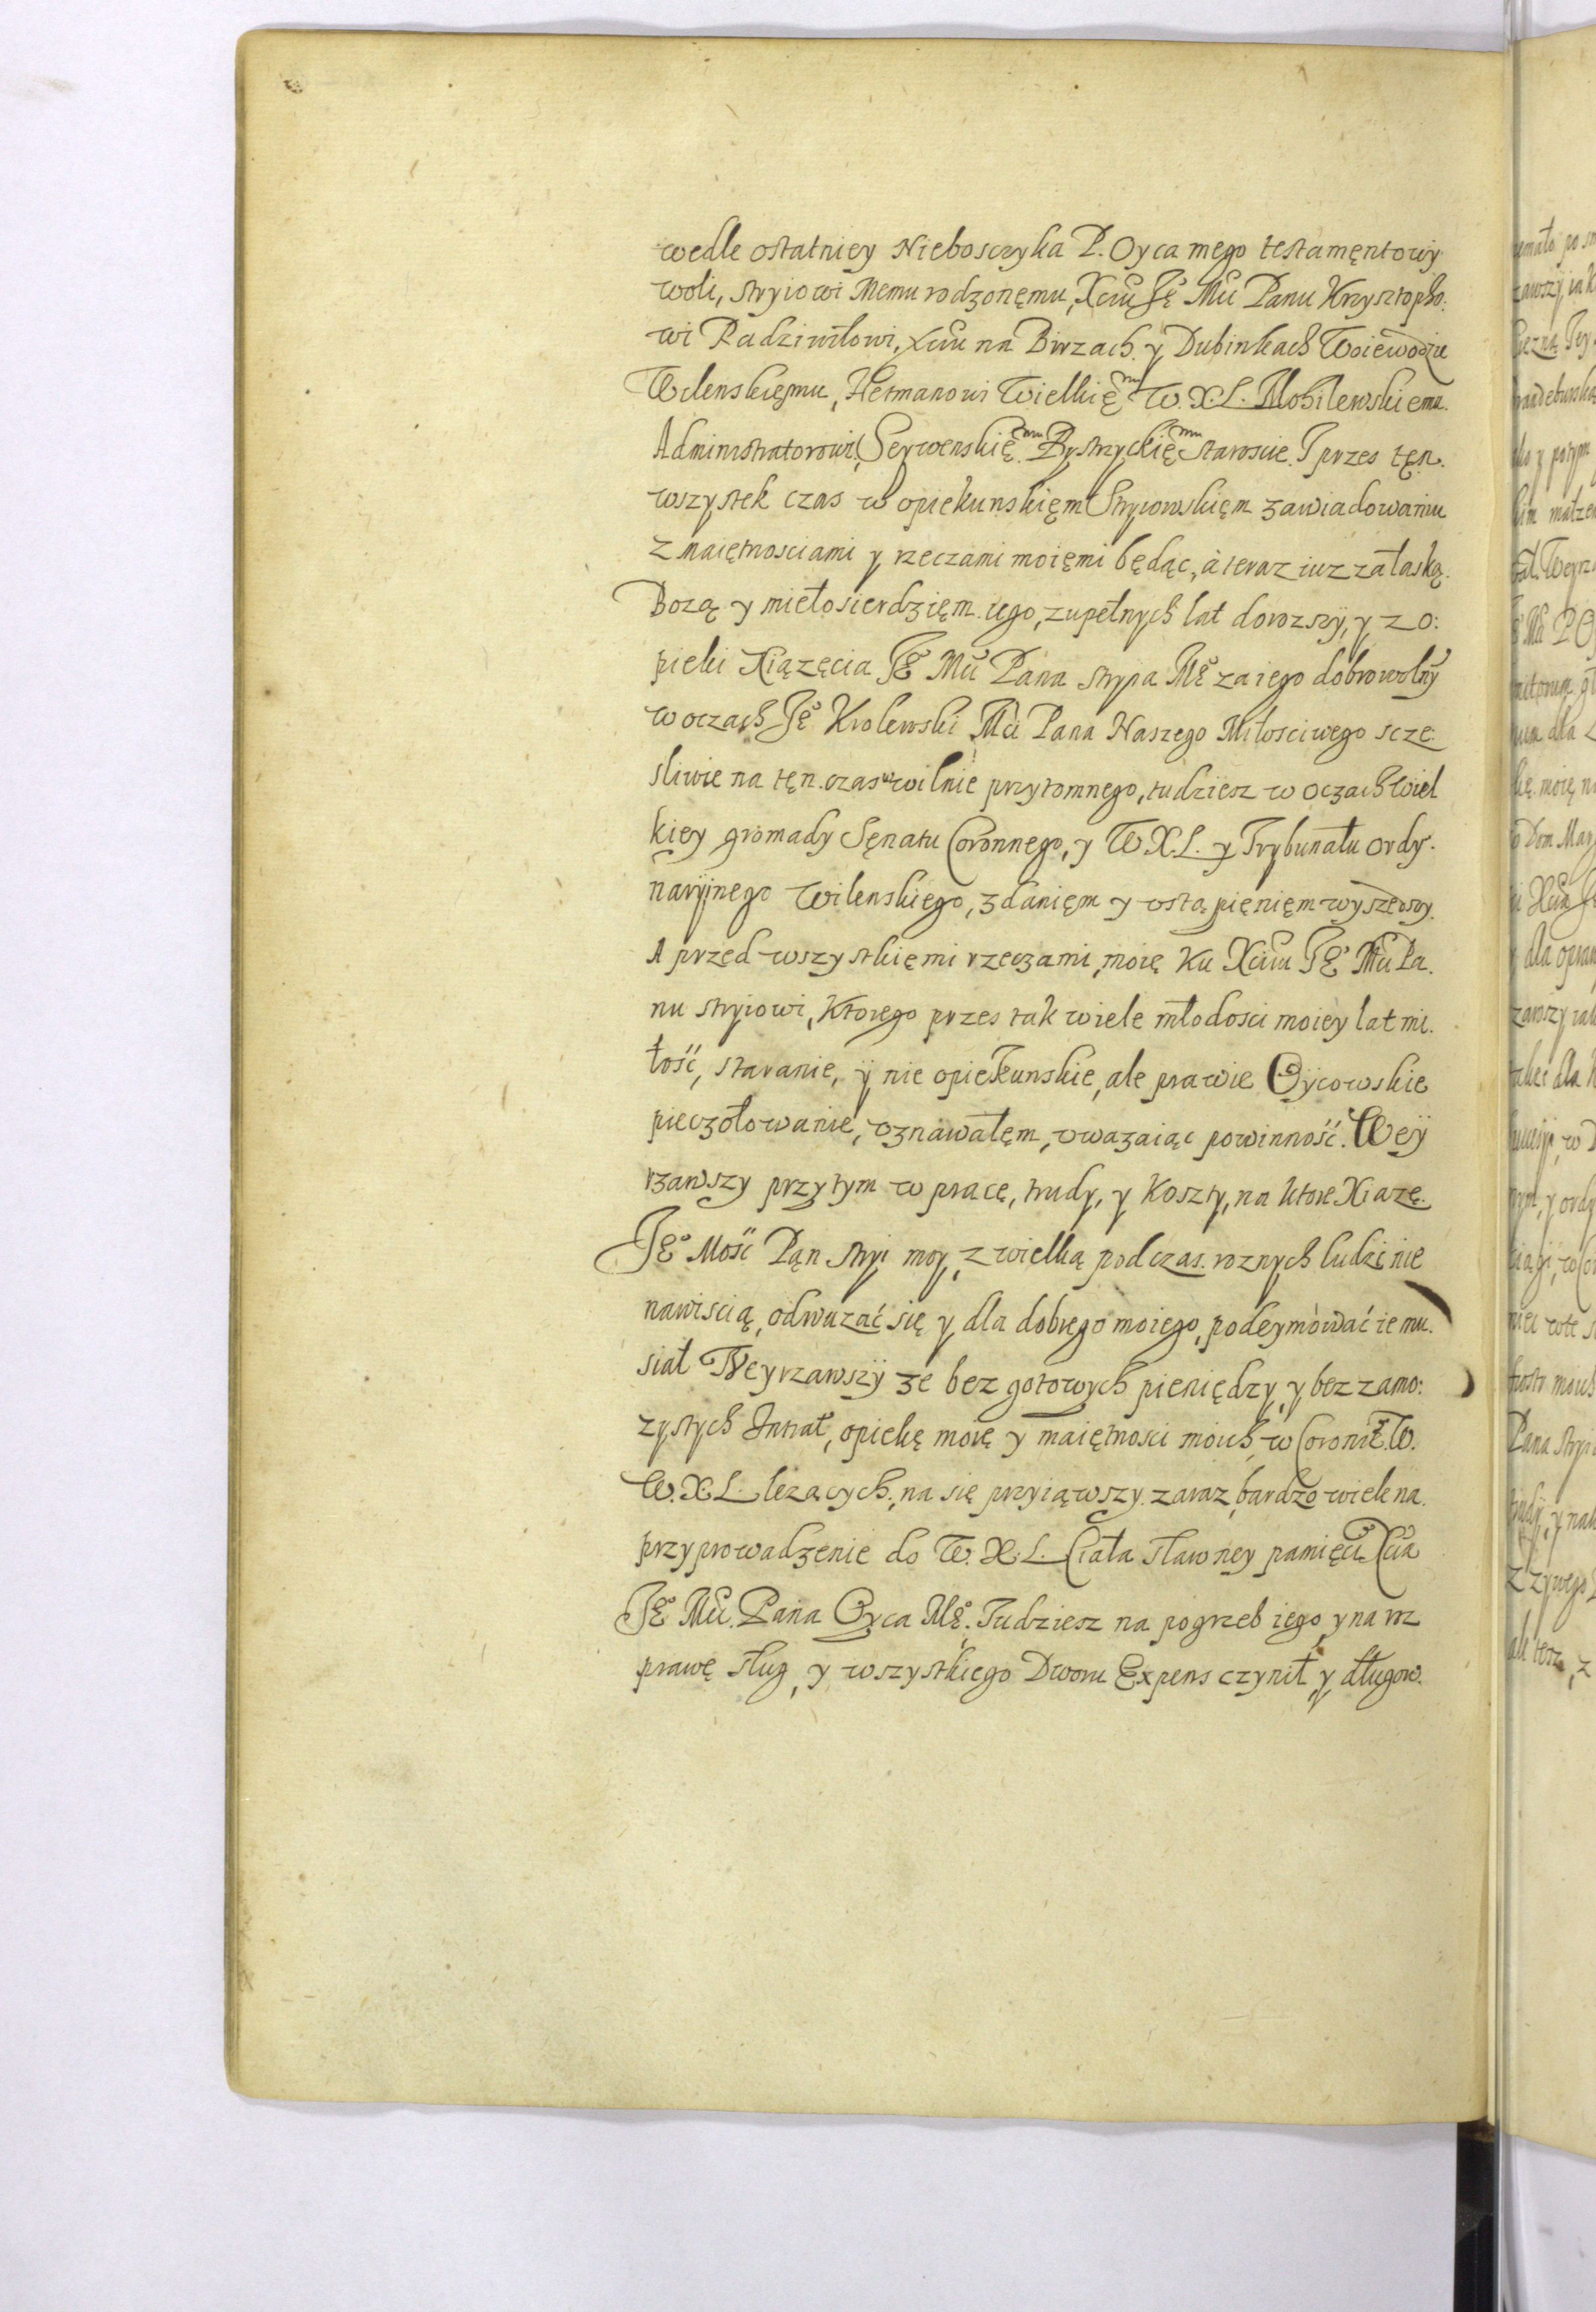 wedle ostatniey Nieboszczyka P. Oyca mego testamęntowÿ
woli, stryiowi Memu rodzonęmu, Xciu Ję Mci Panu Krzysztopho.
wi Radziwiłowi, Xciu na Birzach. y Dubinkach Woiewodzie
Wilenskięmu, Hetmanowi Wielkięmu W. X. L. Mohilewskiemu.
Administratorowi, Seywenskięmu Bystrzyckięmu staroscie. I przes tęn.
wszystek czas w opiekunskięm Stryiowskięm zawiadowaniu
z maiętnosciami y rzeczami moięmi będąc, à teraz iuz za łaską.
Bozą y miełosierdzięm iego, zupełnych lat dorozszÿ, y z o:
pieki Xiązęcia Ję° Mci Pana stryia Mę° za iego dobrowolnÿ
w oczach Ję° Krolewski Mci Pana Naszego Miłosciwego scze:
sliwie na tęn. czas w wilnie przytomnego, tudziesz w oczach wiel
kiey gromady Sęnatu Coronnego, y W. X. L. y Trybunału ordy.
naryjnego wilenskiego, zdanięm y vstąpięnięm wyszedszy.
A przed wszystkięmi rzeczami, moię ku Xciu Ję° Mci Pa.
nu stryiowi, ktorego przes tak wiele młodosci moiey lat mi.
łość, staranie, ÿ nie opiekunskie, ale prawie Oÿcowskie
pieczołowanie, vznawałęm, vwazaiąc powinność. Weÿ
rzawszy przytym w pracę, trudy, y koszty, na ktore Xiazę.
Ję° Mość Pąn stryi moy, z wielką podczas. roznych ludzi nie
nawiscią, odwazać się y dla dobrego moiego, podeymòwać ie mu.
siał Weyrzawszÿ ze bez gotowych pieniędzy, y bez zamo:
zystych Intrat, opiekę moię y maiętnosci moich, w Coronie W.
W. X. L. lezących, na się przyiąwszy. zaraz, bardzo wiele na.
przyprowadzenie do W. X. L. Ciała sławney pamięci Xcia
Ję° Mci. Pana Oyca Mę°. Tudziesz na pogrzeb iego, y na roz
prawę sług, y wszystkiego Dworu Expens czynił, y długow.